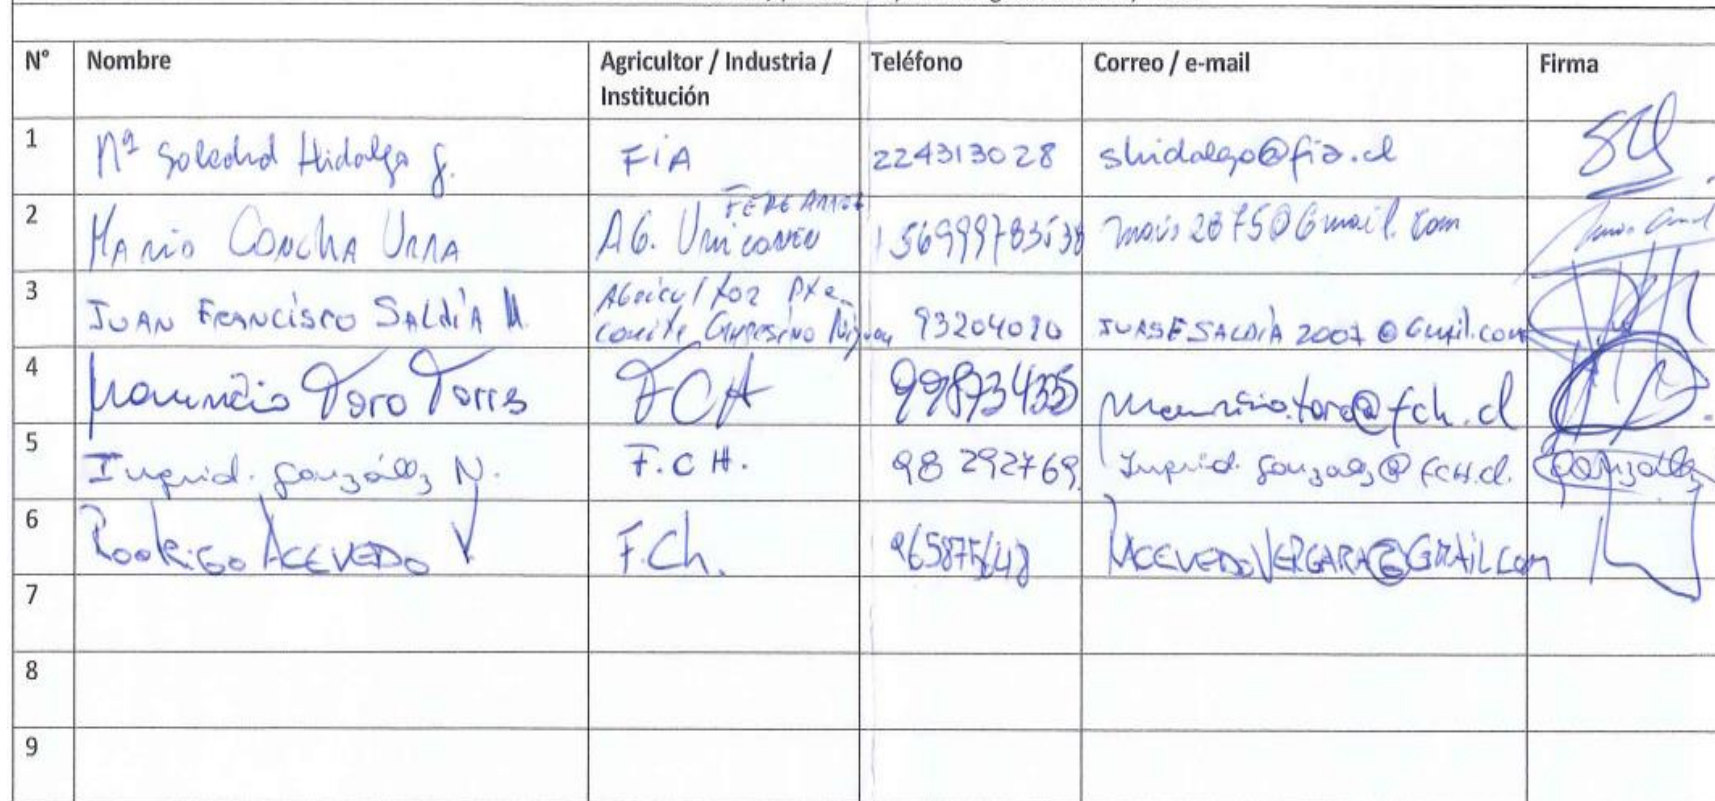 N° Nombre Agricultor / Industria / Institución Teléfono Correo / e-mail Firma
1 Mª Soledad Hidalgo G. FIA 224313028 shidalgo@fia.cl
2 Mario Concha Urra AG. Unicoven FEDEARROZ 56999783538
3 JUAN FRANCISCO SALDÍA M. Agricultor Comité Campesino 93204020
4 Mauricio Toro Torres FCH 998734335 mauricio.toro@fch.cl
5 Ingrid. González N. F.CH. 98 292769 Ingrid.gonzalez@fch.cl. González
6 RODRIGO ACEVEDO V. F.Ch. RACEVEDOVERGARA@GMAIL.COM
7
8
9